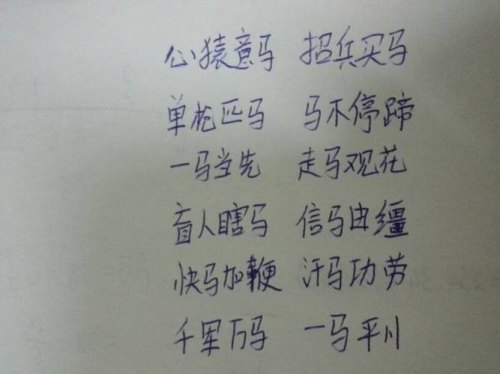 心猿意马 招兵买马
单枪匹马 马不停蹄
一马当先 走马观花
盲人瞎马 信马由缰
快马加鞭 汗马功劳
千军万马 一马平川